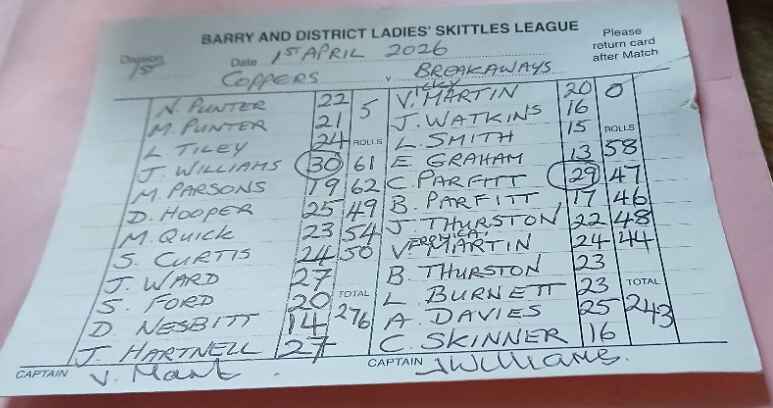 BARRY AND DISTRICT LADIES' SKITTLES LEAGUE
Please return card after Match
Division 1ST Date 1ST APRIL 2026
COPPERS v BREAKAWAYS
N. PUNTER 22 5 VICKY V. MARTIN 20 0
M. PUNTER 21 J. WATKINS 16
L. TILEY 24 ROLLS L. SMITH 15 ROLLS
J. WILLIAMS 30 61 E. GRAHAM 13 58
M. PARSONS 19 62 C. PARFITT 29 47
D. HOOPER 25 49 B. PARFITT 17 46
M. QUICK 23 54 J. THURSTON 22 48
S. CURTIS 24 50 VERONICA V. MARTIN 24 44
J. WARD 27 B. THURSTON 23
S. FORD 20 TOTAL L. BURNETT 23 TOTAL
D. NESBITT 14 276 A. DAVIES 25 243
J. HARTNELL 27 C. SKINNER 16
CAPTAIN V. Mart CAPTAIN J Williams.